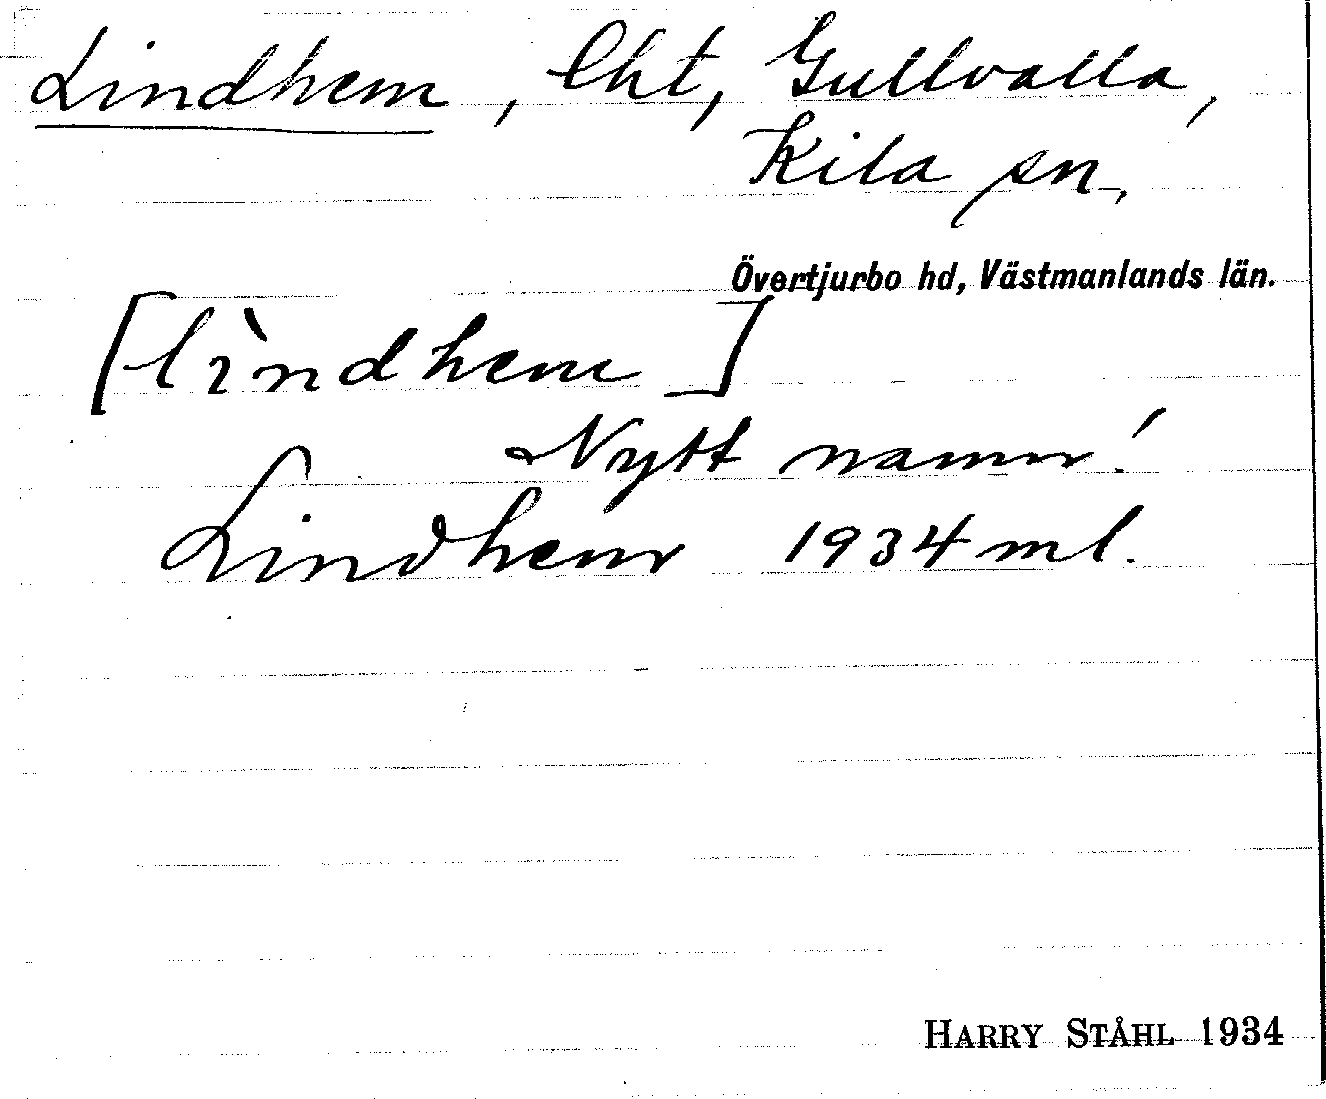 Lindhem, lht, Gullvalla,
Kila sn,
Övertjurbo hd, Västmanlands län.
[lìndhem]
Nytt namn!
Lindhem 1934 ml.
HARRY STÅHL 1934